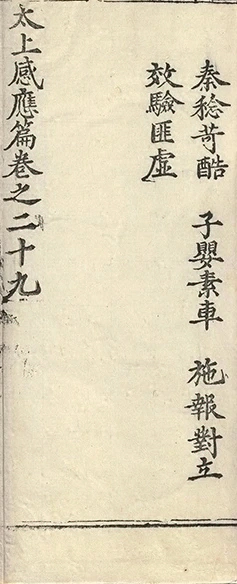 秦稔苛酷　子嬰素車　施報對立
效驗匪虛
太上感應篇卷之二十九